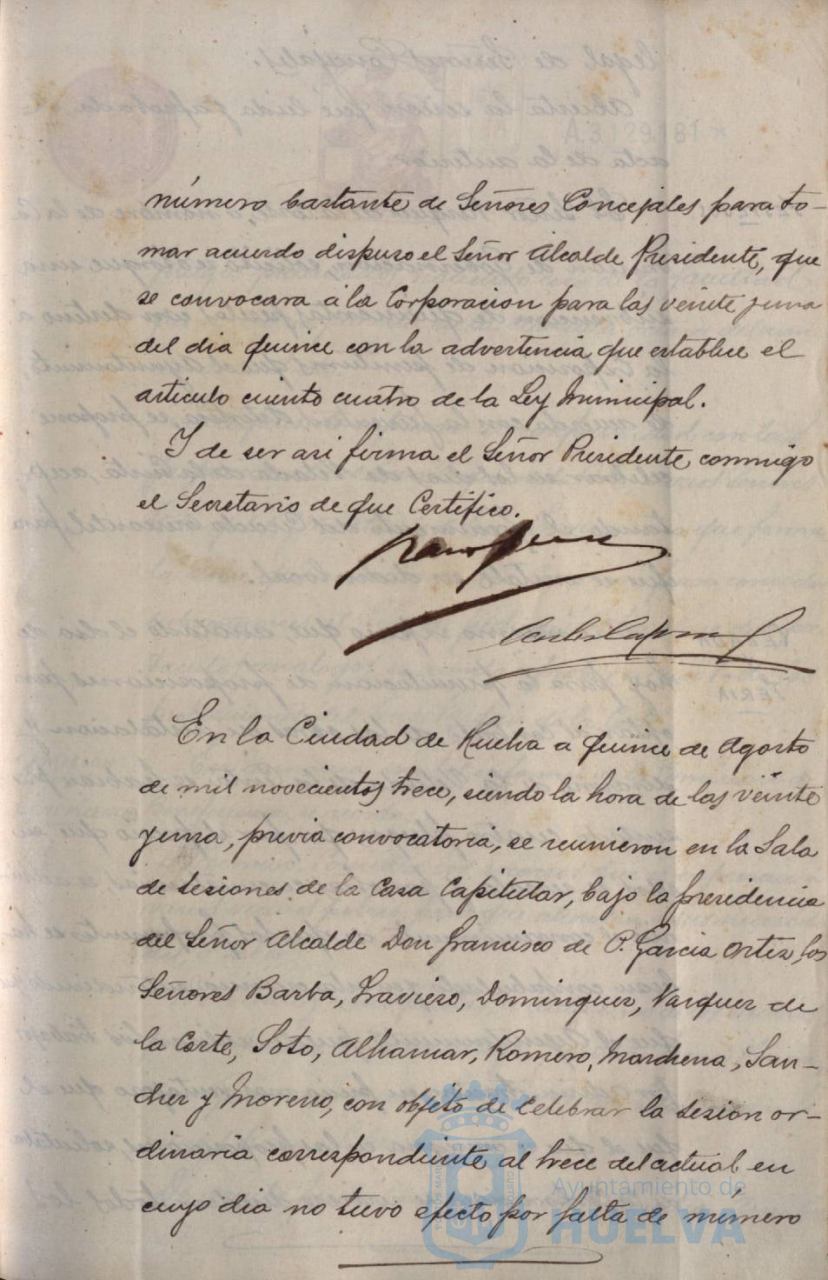 número bastante de Señores Concejales para to-
mar acuerdo dispuso el Señor Alcalde Presidente, que
se convocara á la Corporacion para las veinte y una
del dia quince con la advertencia que establece el
articulo ciento cuatro de la Ley Municipal.
Y de ser asi firma el Señor Presidente conmigo
el Secretario de que Certifico.
En la Ciudad de Huelva á quince de Agosto
de mil novecientos trece, siendo la hora de las veinte
y una, previa convocatoria, se reunieron en la Sala
de Sesiones de la Casa Capitular, bajo la presidencia
del Señor Alcalde Don Francisco de P. Garcia Ortiz, los
Señores Barba, Traviero, Dominguez, Vazquez de
la Corte, Soto, Alhamar, Romero, Marchena, San-
chez y Moreno, con objeto de celebrar la sesion or-
dinaria correspondiente al trece del actual en
cuyo dia no tuvo efecto por falta de número
Ayuntamiento de
HUELVA